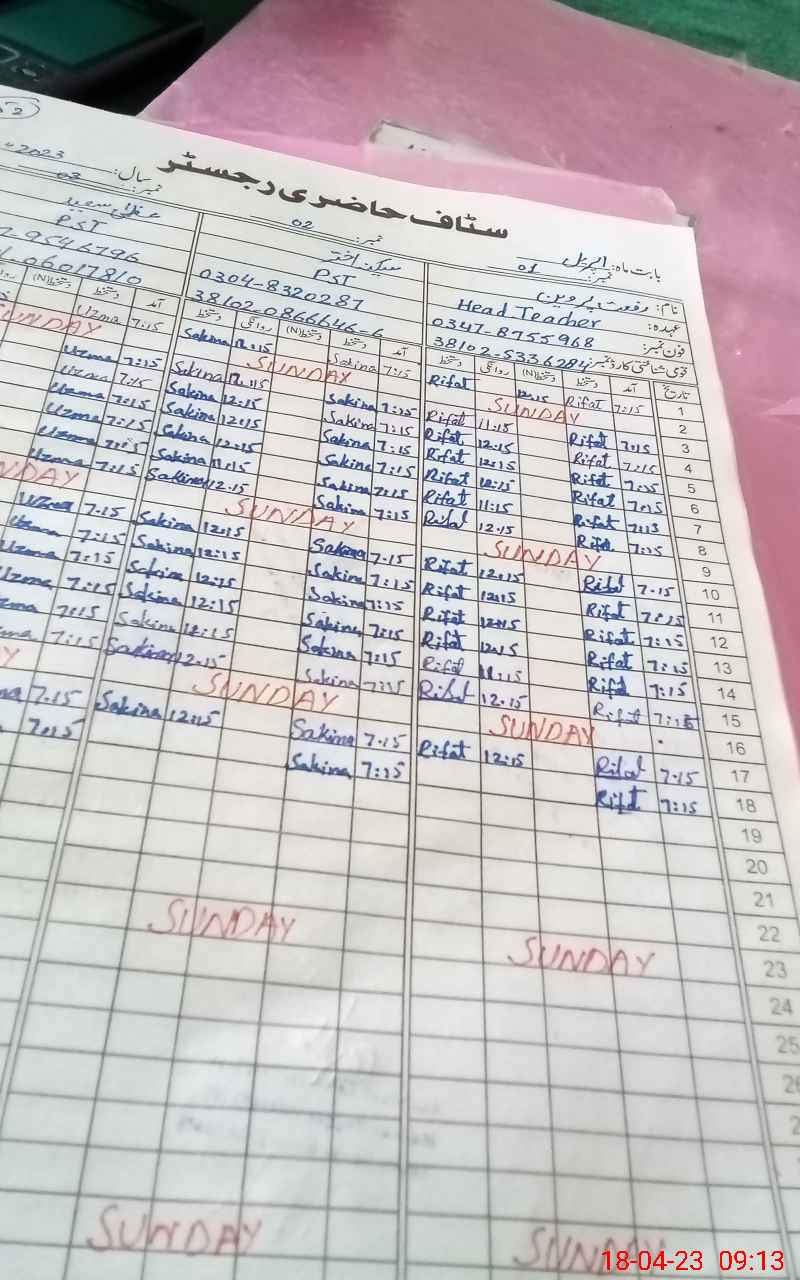 سٹاف حاضری رجسٹر
بابت ماہ: اپریل سال: 2023
نمبر: 01
نام: رفعت پروین
عہدہ: Head Teacher
فون نمبر: 0347-8755968
قومی شناختی کارڈ نمبر: 38102-5336284
نمبر: 02
سکینہ اختر
PST
0304-8320287
38102-0866646-6
نمبر: 03
PST
9546796
06017810
تاریخ آمد دستخط دستخط(N) روانگی دستخط آمد دستخط دستخط(N) روانگی دستخط آمد دستخط دستخط(N)
1 7:15 Rifat 12:15 Rifat 7:15 Sakina 12:15 Sakina 7:15 Uzma
2 SUNDAY SUNDAY SUNDAY
3 7:15 Rifat 11:15 Rifat 7:15 Sakina 11:15 Sakina 7:15 Uzma
4 7:15 Rifat 12:15 Rifat 7:15 Sakina 12:15 Sakina 7:15 Uzma
5 7:15 Rifat 12:15 Rifat 7:15 Sakina 12:15 Sakina 7:15 Uzma
6 7:15 Rifat 12:15 Rifat 7:15 Sakina 12:15 Sakina 7:15 Uzma
7 7:15 Rifat 11:15 Rifat 7:15 Sakina 11:15 Sakina 7:15 Uzma
8 7:15 Rifat 12:15 Rifat 7:15 Sakina 12:15 Sakina 7:15 Uzma
9 SUNDAY SUNDAY NDAY
10 7:15 Rifat 12:15 Rifat 7:15 Sakina 12:15 Sakina 7:15 Uzma
11 7:15 Rifat 12:15 Rifat 7:15 Sakina 12:15 Sakina 7:15 Uzma
12 7:15 Rifat 12:15 Rifat 7:15 Sakina 12:15 Sakina 7:15 Uzma
13 7:15 Rifat 12:15 Rifat 7:15 Sakina 12:15 Sakina 7:15 Uzma
14 7:15 Rifat 11:15 Rifat 7:15 Sakina 12:15 Sakina 7:15 zma
15 7:15 Rifat 12:15 Rifat 7:15 Sakina 12:15 Sakina 7:15
16 SUNDAY SUNDAY Y
17 7:15 Rifat 12:15 Rifat 7:15 Sakina 12:15 Sakina 7:15
18 7:15 Rifat 7:15 Sakina 7:15
19
20
21
22
23 SUNDAY SUNDAY
24
25
SUNDAY SUNDAY
18-04-23 09:13